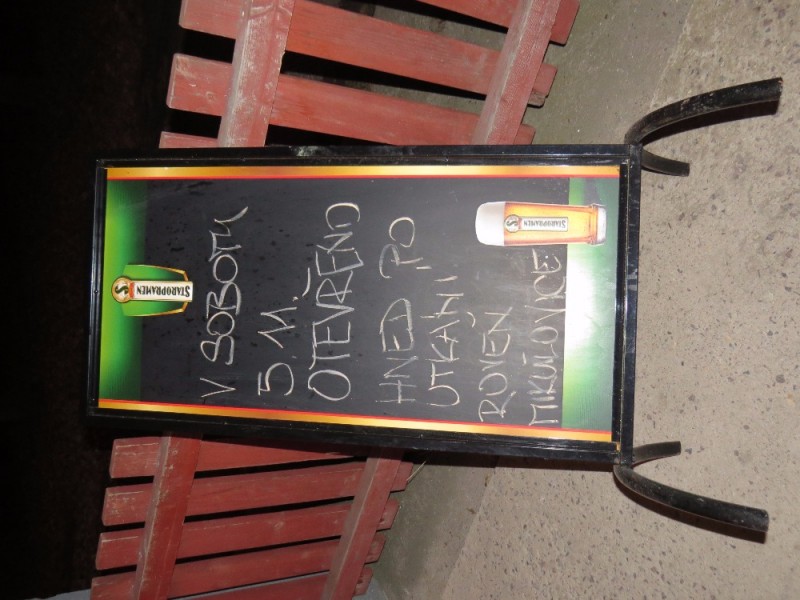 STAROPRAMEN
V SOBOTU
5.11.
OTEVŘENO
HNED PO
UTKÁNÍ
ROVEN
MIKULOVICE
STAROPRAMEN